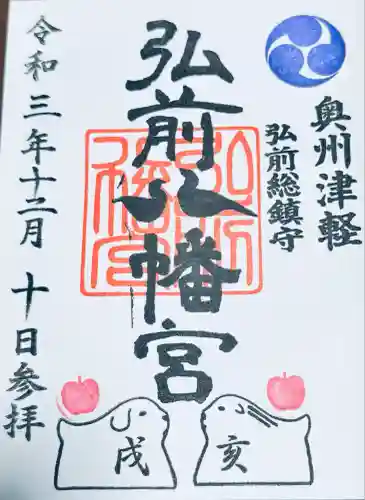 奥州津軽
弘前総鎮守
弘前八幡宮
令和三年十二月十日参拝
戌
亥